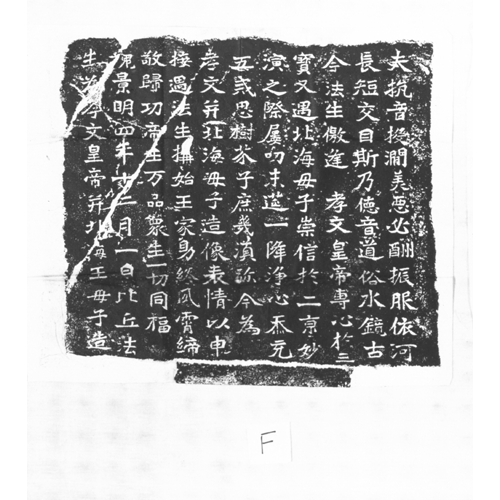 夫抗音投澗美惡必酬振服依河
長短交目斯乃德音道俗水鏡古
今法生儌逢 孝文皇帝專心於三
寶又遇北海母子崇信於二京妙
演之際屢叨末筵一降淨心忝充
五戒思樹芥子庶幾須彌今為
孝文并北海母子造像表情以申
接遇法生構始王家助終夙霄締
敬歸功帝主万品眾生一切同福
魏景明四年十二月一日比丘法
生為孝文皇帝并北海王母子造
F